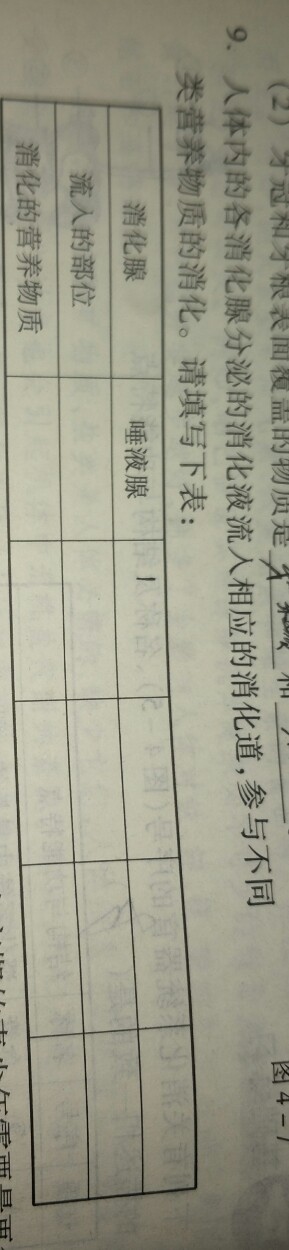 (2) 牙冠和牙根表面覆盖的物质是 和
图4-7
9. 人体内的各消化腺分泌的消化液流入相应的消化道,参与不同
类营养物质的消化。请填写下表:
消化腺 唾液腺
流入的部位
消化的营养物质